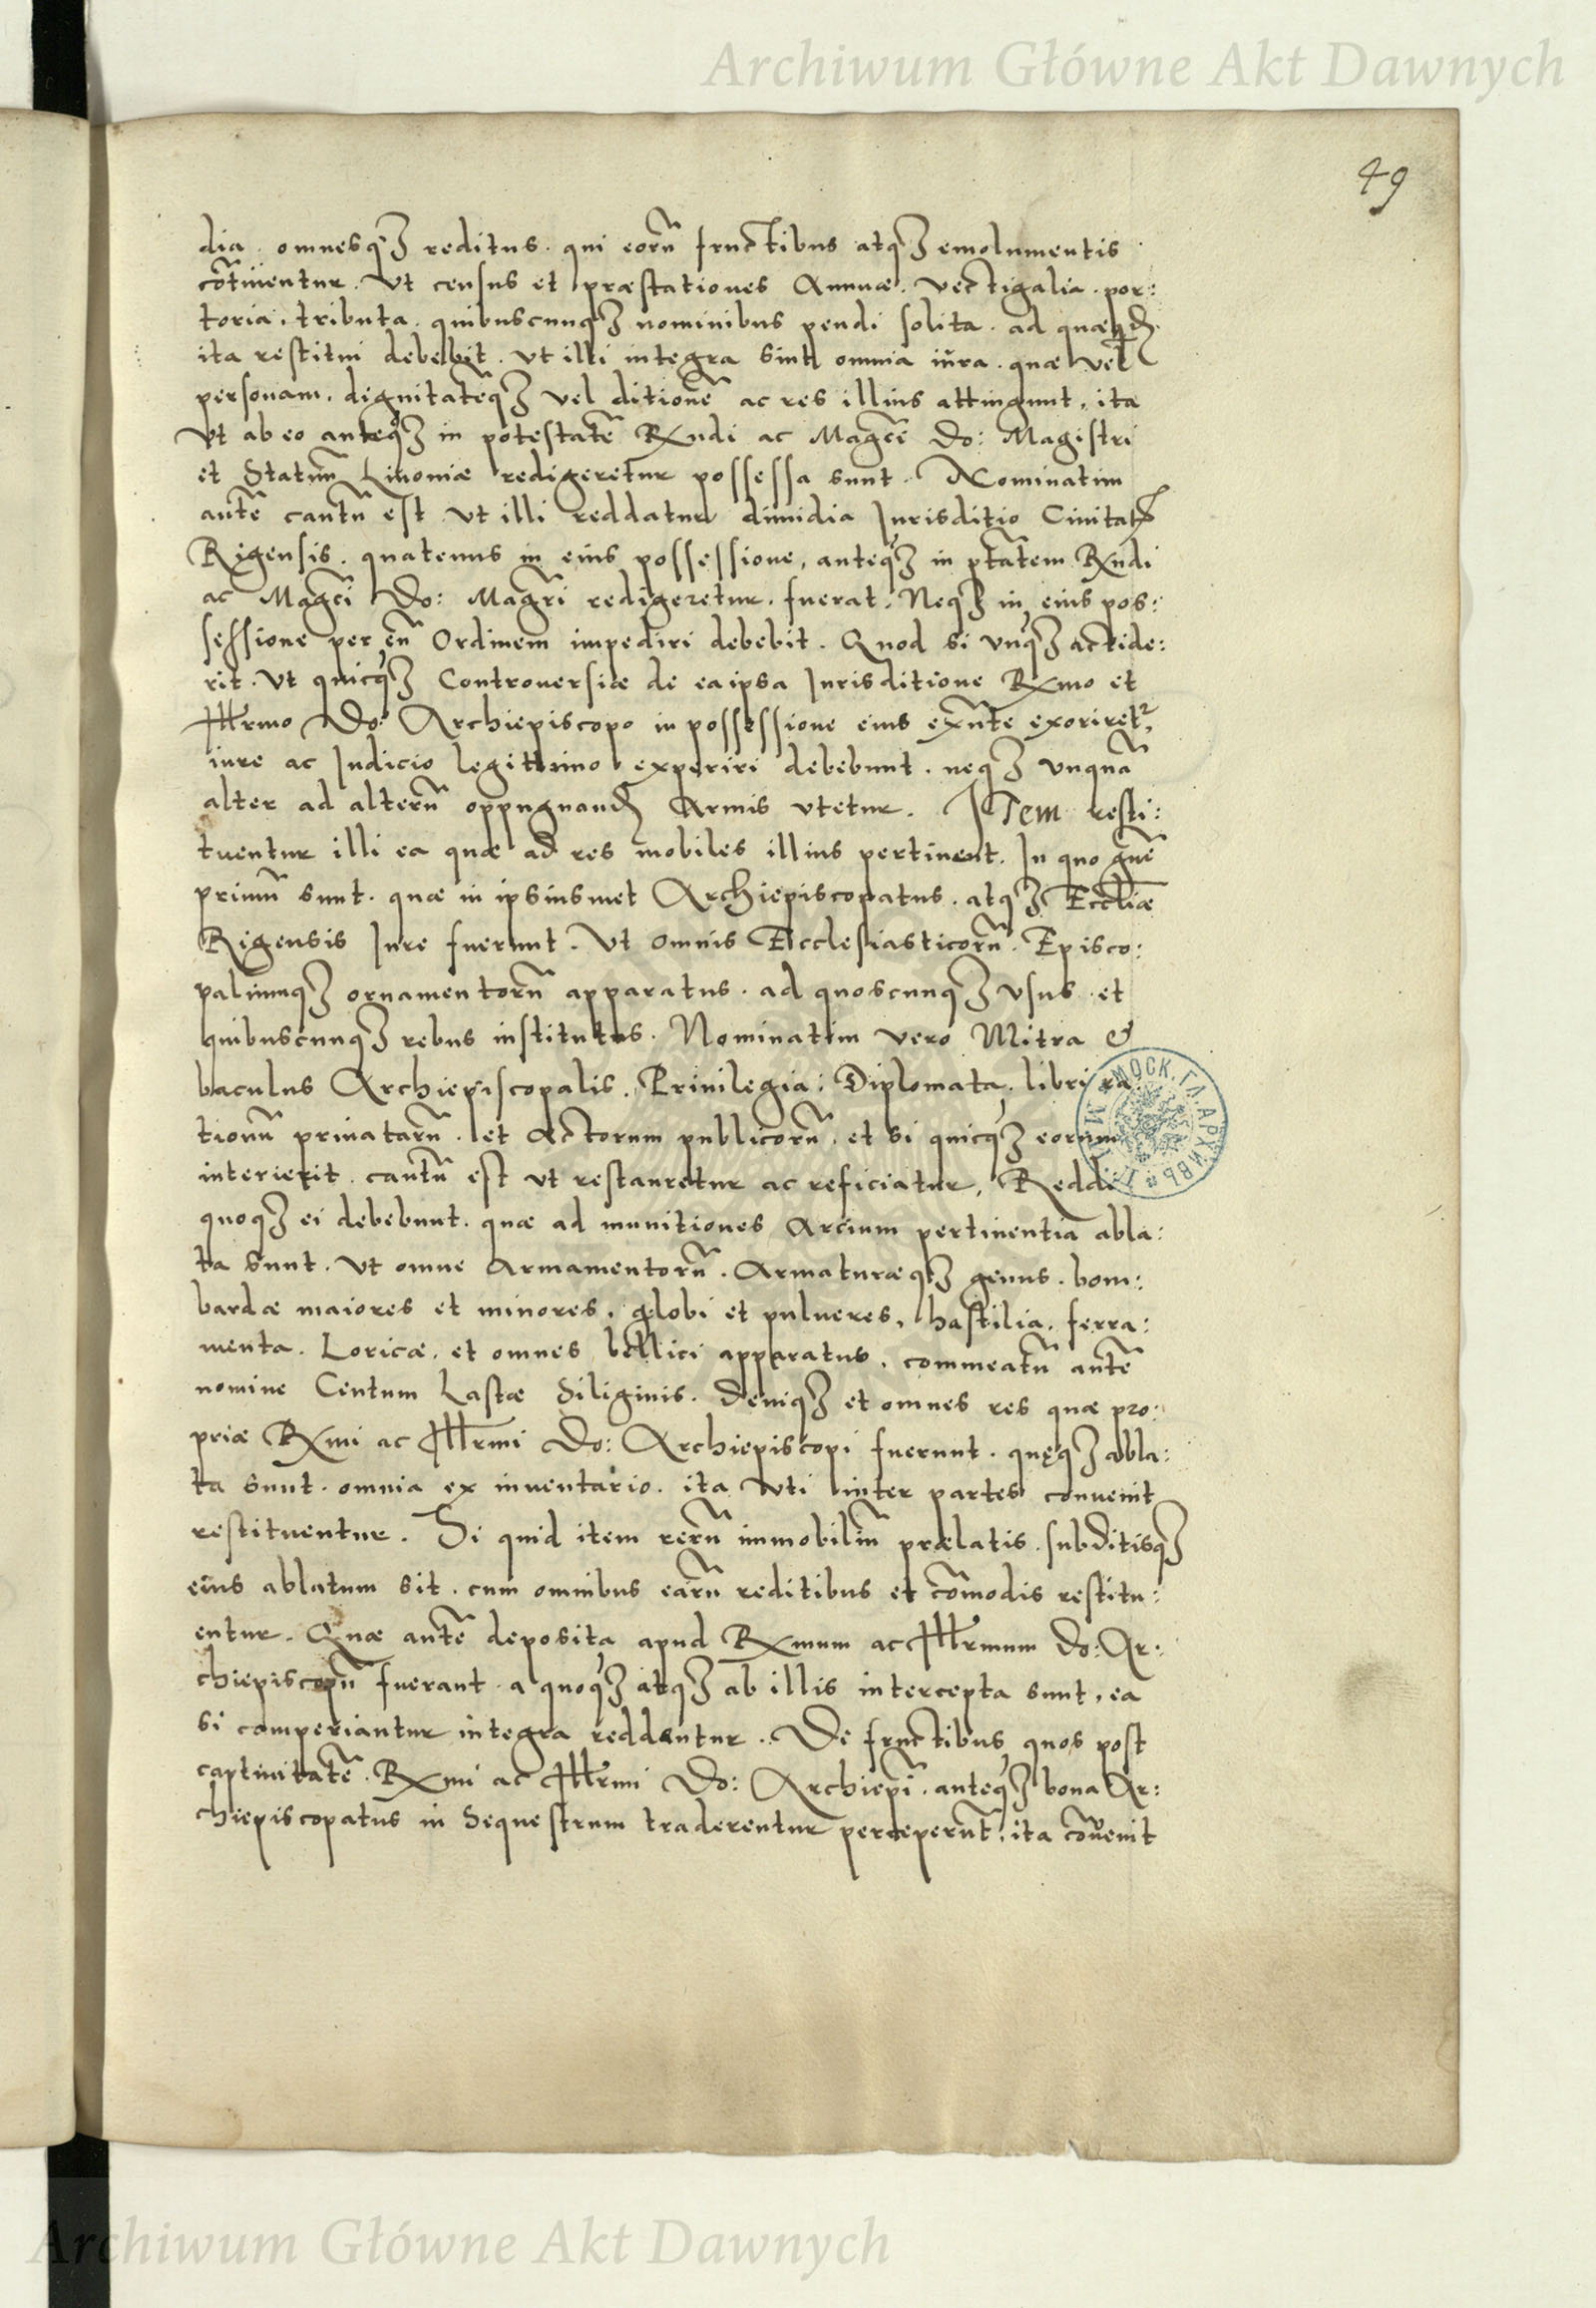 Archiwum Główne Akt Dawnych
49
dia. omnesqȝ reditus. qui eorū fructibus atqȝ emolumentis
cōtinentur. Vt census et præstationes Annuæ. Vectigalia. por:
toria. tributa. quibuscunqȝ nominibus pendi solita. ad quæ
ita restitui debebit. Vt illi integra sint omnia iura. quæ vel
personam. dignitatēqȝ vel ditionē ac res illius attingunt. ita
Vt ab eo anteqȝ in potestatē Rxndi ac Magcī Do: Magistri
et Statuū Liuoniæ redigeretur possessa sunt. Nominatim
autē cautū est Vt illi reddatur dimidia Jurisditio Ciuitatis
Rigensis. quatenus in eius possessione, anteqȝ in ptātem Rxndi
ac Magcī Do: Magrī redigeretur. fuerat. Neqȝ in eius pos:
sessione per eū Ordinem impediri debebit. Quod si vnqȝ accide:
rit. Vt quicqȝ Controuersiæ de ea ipsa Jurisditione Rxmo et
Illrmo Do: Archiepiscopo in possessione eius exn̄te exoriret,
iure ac Judicio legittimo experiri debebunt. neqȝ vnquā
alter ad alterū oppugnand Armis vtetur. JTem resti:
tuentur illi ea quæ ad res mobiles illius pertinent. In quo gn̄e
primū sunt. quæ in ipsiusmet Archiepiscopatus. atqȝ Eccliæ
Rigensis Jure fuerunt. Vt omnis Ecclesiasticorū. Episco:
paliumqȝ ornamentorū apparatus. ad quoscunqȝ vsus et
quibuscunqȝ rebus institutus. Nominatim vero Mitra &
baculus Archiepiscopalis. Priuilegia. Diplomata. libri ra
tionū priuatarū. et Actorum publicorū. et si quicqȝ eorum
interierit. cautū est vt restauretur ac reficiatur, Reddi
quoqȝ ei debebunt. quæ ad munitiones Arcium pertinentia abla:
ta sunt. Vt omne Armamentorū. Armaturæqȝ genus. bom:
bardæ maiores et minores. globi et pulueres, hastilia. ferra:
menta. Loricæ. et omnes bellici apparatus. commeatū autē
nomine Centum Lastæ Siliginis. deniqȝ et omnes res quæ pro:
priæ Rxmi ac Illrmi Do: Archiepiscopi fuerunt. quęqȝ abla:
ta sunt. omnia ex inuentario. ita vti inter partes conuenit
restituentur. Si quid item rerū immobiliū prælatis. subditisqȝ
eius ablatum sit. cum omnibus earū reditibus et cōmodis restitu:
entur. Quæ autē deposita apud Rxmum ac Illrmum Do: Ar:
chiepiscopū fuerant. a quoqȝ atqȝ ab illis intercepta sunt, ea
si comperiantur integra reddantur. De fructibus quos post
captiuitatē. Rxmi ac Illrmi Do: Archiepī. anteqȝ bona Ar:
chiepiscopatus in Sequestrum traderentur perceperūt. ita cōuenit
МОСК. ГЛ. АРХИВЪ
Archiwum Główne Akt Dawnych